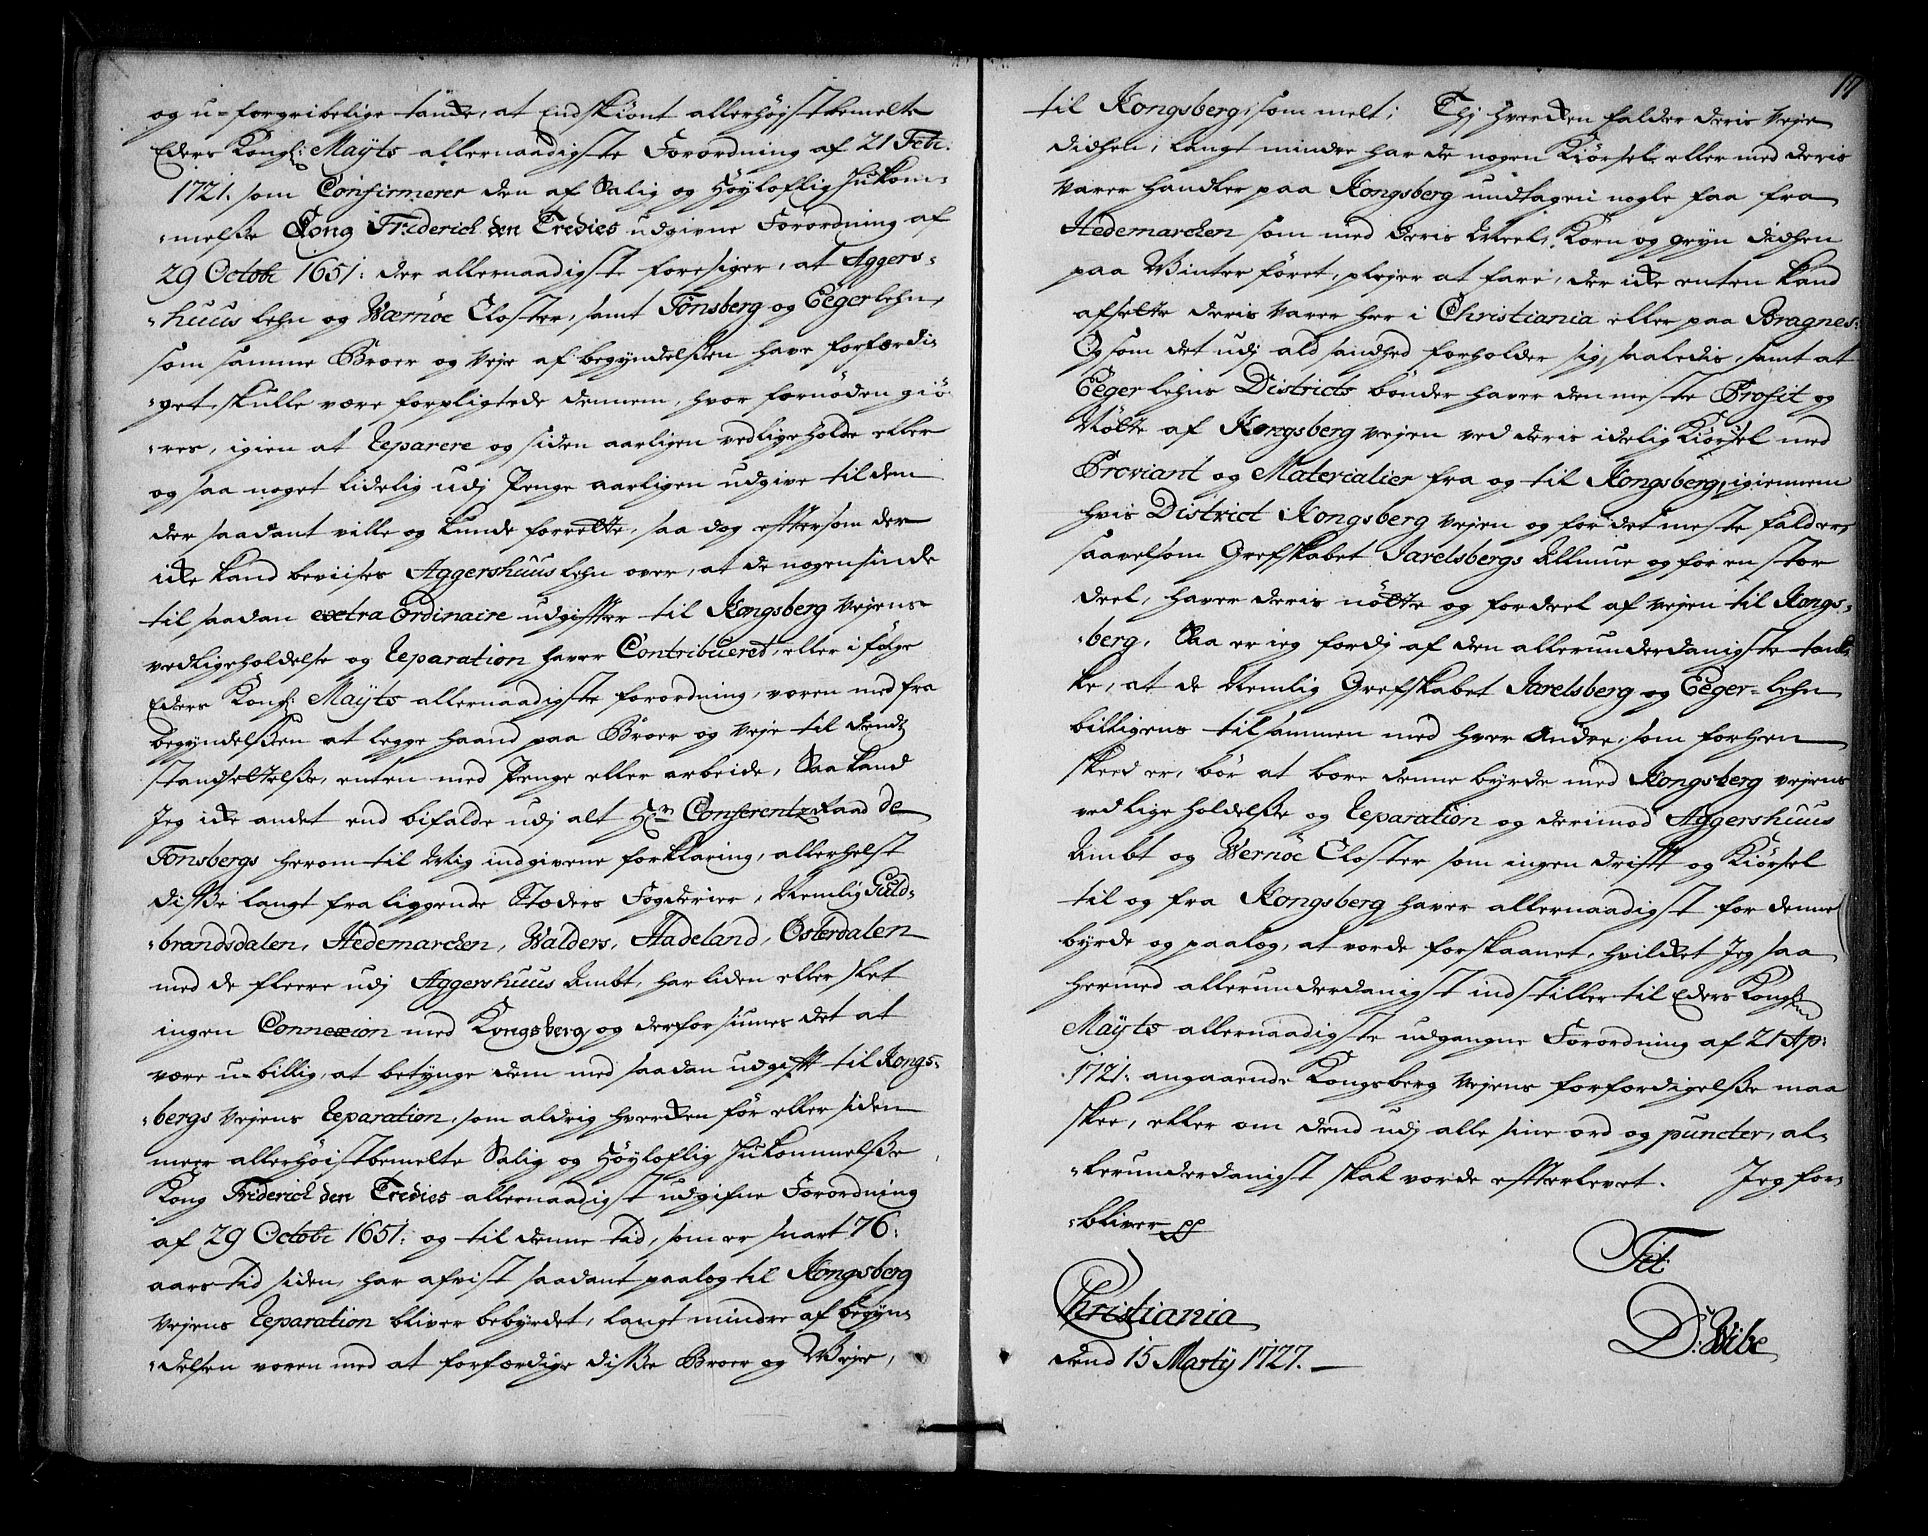 og u-forgribelige tanke, at Endskiønt allerhøystbemelte
Eders Kongl: Mayts allernaadigste Forordning af 21 Feb:
1721. som Confirmerer den af Salig og Høyloflig Jhukom-
-melße Kong Friderich den Tredies udgivne Forordning af
29 Octobr 1651: der allernaadigste foresiger, at Aggers-
-huus Lehn og Wærnøe Closter, samt Tønsberg og Eeger Lehn,
som samme Broer og Veje af begyndelßen have forfærdi-
-get, skulle være forpligtede dennem, hvor fornøden giø-
-res, igien at Reparere og siden aarligen vedligeholde eller
og saa noget lidelig udj Penge aarligen udgive til dem
der saadant ville og kunde forrette, saa dog efftersom der
icke kand beviises Aggershuus Lehn over, at de nogensinde
til saadan extra Ordinaire udgiffter til Kongsberg Vejens
vedligeholdelse og Reparation haver Contribueret, eller i følge
Eders Kongl: Mayts allernaadigste forordning, været med fra
begyndelßen at legge haand paa Broer og Veje til dends
standsettelße, enten med Penge eller arbeide, Saa kand
Jeg icke andet end bifalde udj alt Hr: Conferentz Raad de
Tonsbergs herom til Mig indgivene forklaring, allerhelst
diße langt fraliggende Stæders Fogderier, Nemlig Guld-
-brandsdalen, Hedemarchen, Walders, Hadeland, Østerdalen
med de fleere udj Aggershuus Ambt, har liden eller slet
ingen Connexion med Kongsberg, og derfor siunes det at
være u-billig, at betynge dem med saadan udgifft til Kongs-
-bergs Vejens Reparation, som aldrig hvercken før eller siden
meer allerhøistbemelte Salig og Høyloflig Jhukommelße
Kong Friderich den Tredies allernaadigst udgifne Forordning
af 29 Octobr 1651: og til denne tid, som er snart 76:
aars tid siden, har afvist saadant paalæg til Kongsberg
Vejens Reparation bliver bebyrdet, langt mindre af begyn-
-delsen været med at forfærdige diße Broer og Veje,
17
til Kongsberg, som melt; Thj hvercken falder deris Veje
didhen, langt mindre har de nogen Kiørsel eller med deris
Varer handler paa Kongsberg undtagen nogle faa fra
Hedemarchen som med deris Meel, Korn og gryn didhen
paa Winterføret, plejer at fare, der icke enten kand
afsette deris Varer her i Christiania eller paa Bragnes:
Og som det udj ald sandhed forholder sig saaledis, samt at
Eeger Lehns Districts bønder haver den meste Profit og
Nøtte af Kongsberg Vejen ved deris idelig Kiørsel med
Proviant og Materialier fra og til Kongsberg, igiennem
hvis District Kongsberg Vejen og for det meste falder,
saavelsom Grefskabet Jarelsbergs Almue og for en stor
deel, haver deris nøtte og fordeel af Vejen til Kongs-
-berg. Saa er ieg fordj af den allerunderdanigste tan-
ke, at de Nemlig Grefskabet Jarelsberg og Eeger-Lehn
billigens tilsammen med hver Andre, som forhen
skeed er, bør at bære denne byrde med Kongsberg Vejens
vedligeholdelße og Reparation og derimod Aggershuus
Ambt og Wernøe Closter som ingen drifft og Kiørsel
til og fra Kongsberg haver allernaadigst for denne
byrde og paalæg, at vorde forskaanet, hvilcket Jeg saa
hermed allerunderdanigst indstiller til Eders Kongl:
Mayts allernaadigste udgangne Forordning af 21 Ap:
1721: angaaende Kongsberg Vejens forfærdigelße maa
skee, eller om dend udj alle sine ord og puncter, al-
-lerunderdanigst skal vorde effterlevet. Jeg for-
-bliver
Tit
Christiania
dend 15 Marty 1727.
D: Wibe